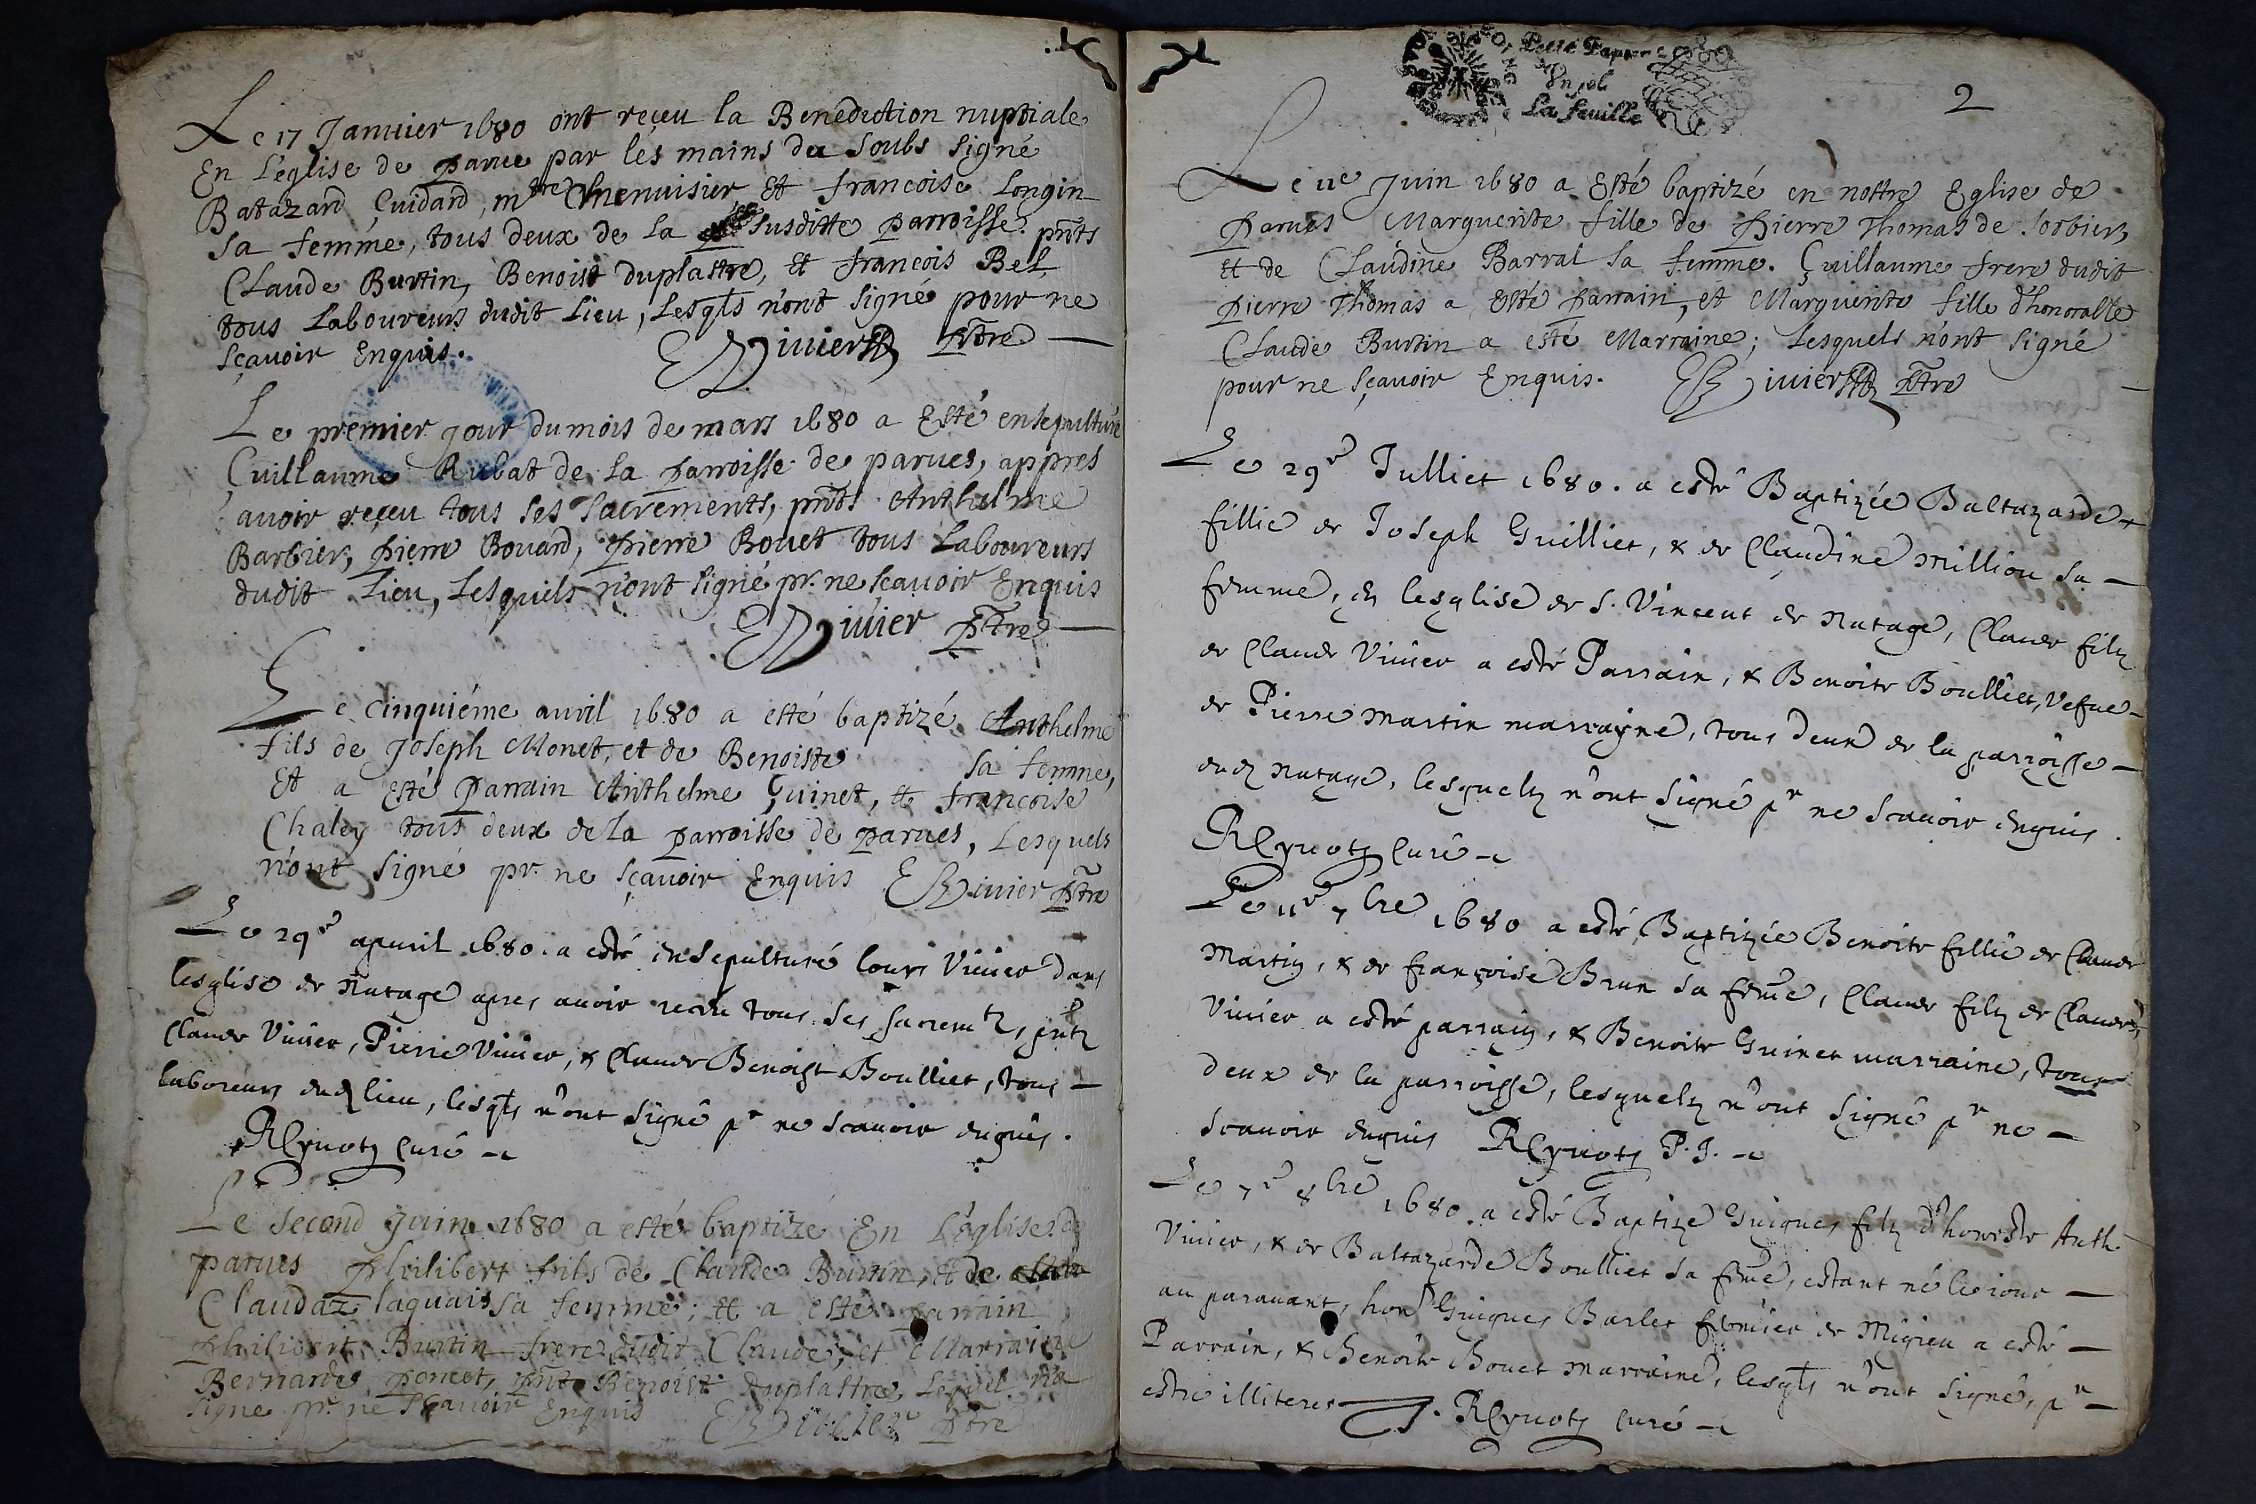 Le 17 Januier 1680 ont reçeu la Benediction nuptiale
En L'eglise de parue par les mains du soubs signé
Batazard Guidard, mtre menuisier Et francoise Longin
sa femme, tous deux de la susditte parroisse. pnts
Claude Burtin, Benoist duplastre, et francois Bel
tous Laboureurs dudit Lieu, Lesqts n'ont signé pour ne
sçauoir Enquis. Diuier ptre
Le premier jour du mois de mars 1680 a Esté ensepulturé
Guillaume Rubat de la parroisse de parues, appres
auoir reçeu tous ses sacrements, pnts Anthelme
Barbier, pierre Bouard, pierre Bouet tous Laboureurs
dudit Lieu, Lesquels n'ont signé pr. ne sçauoir Enquis
Diuier ptre
Le cinquiéme auril 1680 a esté baptizé Anthelme
fils de Joseph Monet, et de Benoiste sa femme,
Et a esté parrain Anthelme Guinet, et francoise
Chaley tous deux de la parroisse de parues, Lesquels
n'ont signé pr. ne sçauoir Enquis Diuier ptre
Le 29e apuril 1680. a esté ensepulturé Louys Viuier dans
lesglise de Natage apres auoir receu tous ses sacremtz, pntz
Claude Viuier, Pierre Viuier, & Claude Benoist Boulliet, tous
laboreurs dud lieu, lesqts n'ont signé pr ne scauoir enquis.
Reynotz curé
Le second Juin 1680 a esté baptizé En L'eglise de
parues philibert fils de Claude Burtin, et de
Claudaz laquais sa femme; et a esté parrain
philibert Burtin frere dudit Claude, et Marraine
Bernarde poncet, pnt Benoist duplastre, Lequel n'a
signe pr. ne sçauoir Enquis Diuier ptre
Petit Papier
Un sol
La feuille
2
Le 11e Juin 1680 a Esté baptizé en nottre Eglise de
parues Marguerite fille de pierre Thomas de sorbier,
et de Claudine Barral sa femme. Guillaume frere dudit
pierre Thomas a esté parrain, et Marguerite fille d'honorable
Claude Burtin a esté Marraine; Lesquels n'ont signé
pour ne sçauoir Enquis. Diuier ptre
Le 29e Julliet 1680. a esté Baptizée Baltazarde
fillie de Joseph Guilliet, & de Claudine Million sa
femme, en lesglise de S. Vincent de Natage, Claude filz
de Claude Viuier a esté Parrain, & Benoite Boulliet, Vefue
de Pierre Martin marrayne, tous deux de la parroisse
dud Natage, lesquelz n'ont signé pr ne scauoir enquis.
Reynotz curé
Le 11e 7bre 1680 a esté Baptizée Benoite fillie de Claude
Martin, & de françoise Brun sa feme, Claude filz de Claude
Viuier a esté parrain, & Benoite Guinet marraine, tous
deux de la parroisse, lesquelz n'ont signé pr ne
scauoir enquis Reynotz P.J.
Le 7e 8bre 1680. a esté Baptizé Guigues filz d'honeste Anth
Viuier, & de Baltazarde Boulliet sa feme, estant né le iour
au parauant, hon Guigues Barlet fermier de Migieu a esté
Parrain, & Benoite Bouet marraine, lesqts n'ont signé, pr
estre illiteres J. Reynotz curé